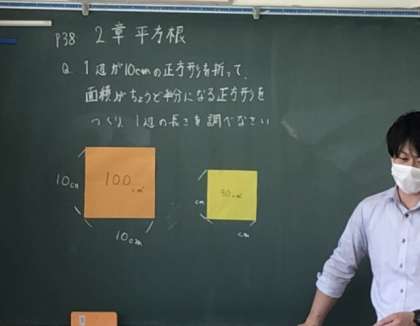 P38 2章 平方根
Q. 1辺が10cmの正方形を折って、
面積がちょうど半分になる正方形を
つくり、1辺の長さを調べなさい
10cm
100cm²
10cm
50cm²
cm
cm